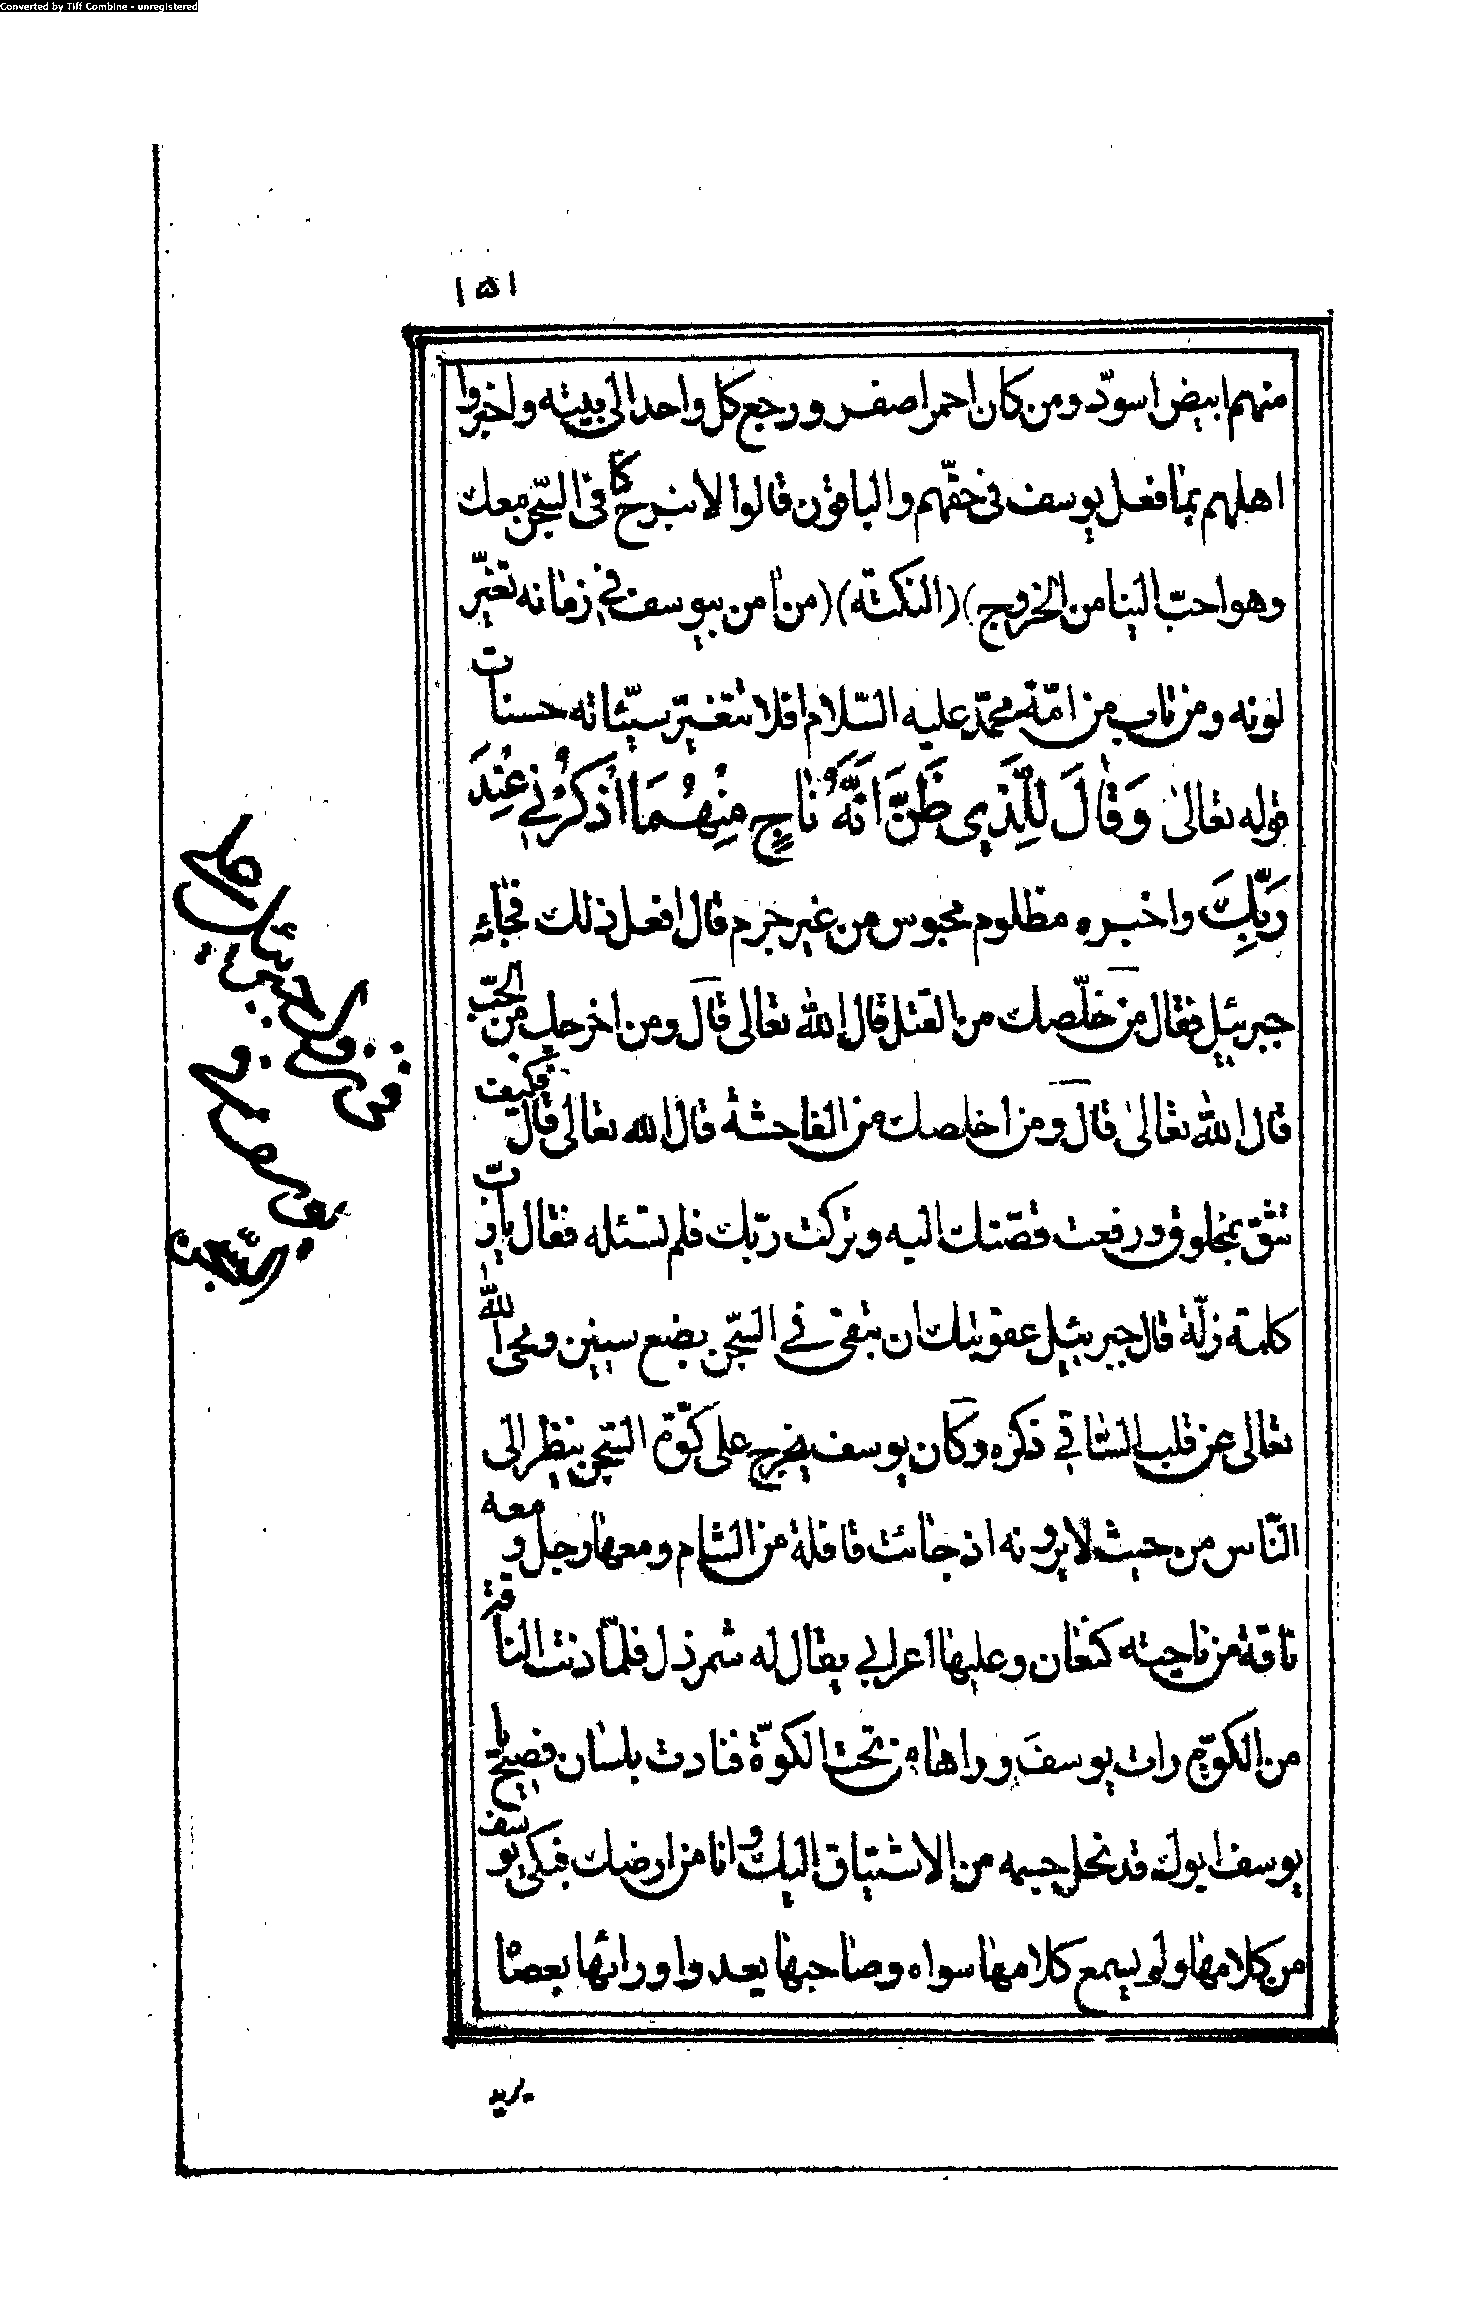 Converted by Tiff Combine - unregistered
١٥١
منهم ابيض اسودّ ومن كان احمر اصفر ورجع كل واحد الى بيته واخبروا
اهلهم بما فعل يوسف فى حقّهم والباقون قالوا لانبرح كنّا فى السّجن معك
وهو احبّ الينا من الخروج) (النكتة) (من امن بيوسف فى زمانه تغيّر
لونه ومن تاب من امّة محمّد عليه السّلام افلا تتغيّر سيّئاته حسنات
قوله تعالىٰ وَقَالَ لِلَّذِى ظَنَّ اَنَّهُ نَاجٍ مِنْهُمَا اذْكُرْنِى عِنْدَ
رَبِّكَ واخبره مظلوم محبوس من غير جرم قال افعل ذلك فجائه
جبرئيل فقال من خلّصك من القتل قال الله تعالى قال ومن اخرجك من الجبّ
قال الله تعالىٰ قال ومن اخلصك من الفاحشة قال الله تعالى قال فكيف
تثق بمخلوق ورفعت قصّتك اليه وتركت ربّك فلم تسئله فقال يا ربّ
كلمة زلّة قال جبرئيل عقوبتك ان تبقى فى السّجن بضع سنين ومحى الله
تعالى عن قلب السّاقى ذكره وكان يوسف يخرج على كوّة السّجن ينظر الى
النّاس من حيث لا يرونه اذ جائت قافلة من الشام ومعها رجل و معه
ناقة من ناحية كنعان وعليها اعرابى يقال له شمرذل فلمّا دنت الناقة
من الكوّة رات يوسف وراها من تحت الكوّة فنادت بلسان فصيح يا
يوسف ابوك قد نحل جسمه من الاشتياق اليك وانا من ارضك فبكى يوسف
من كلامها ولم يسمع كلامها سواه وصاحبها يعدوا ورائها بعصا
يريد
فى نزول جبرئيل على
يوسف فى
السّجن